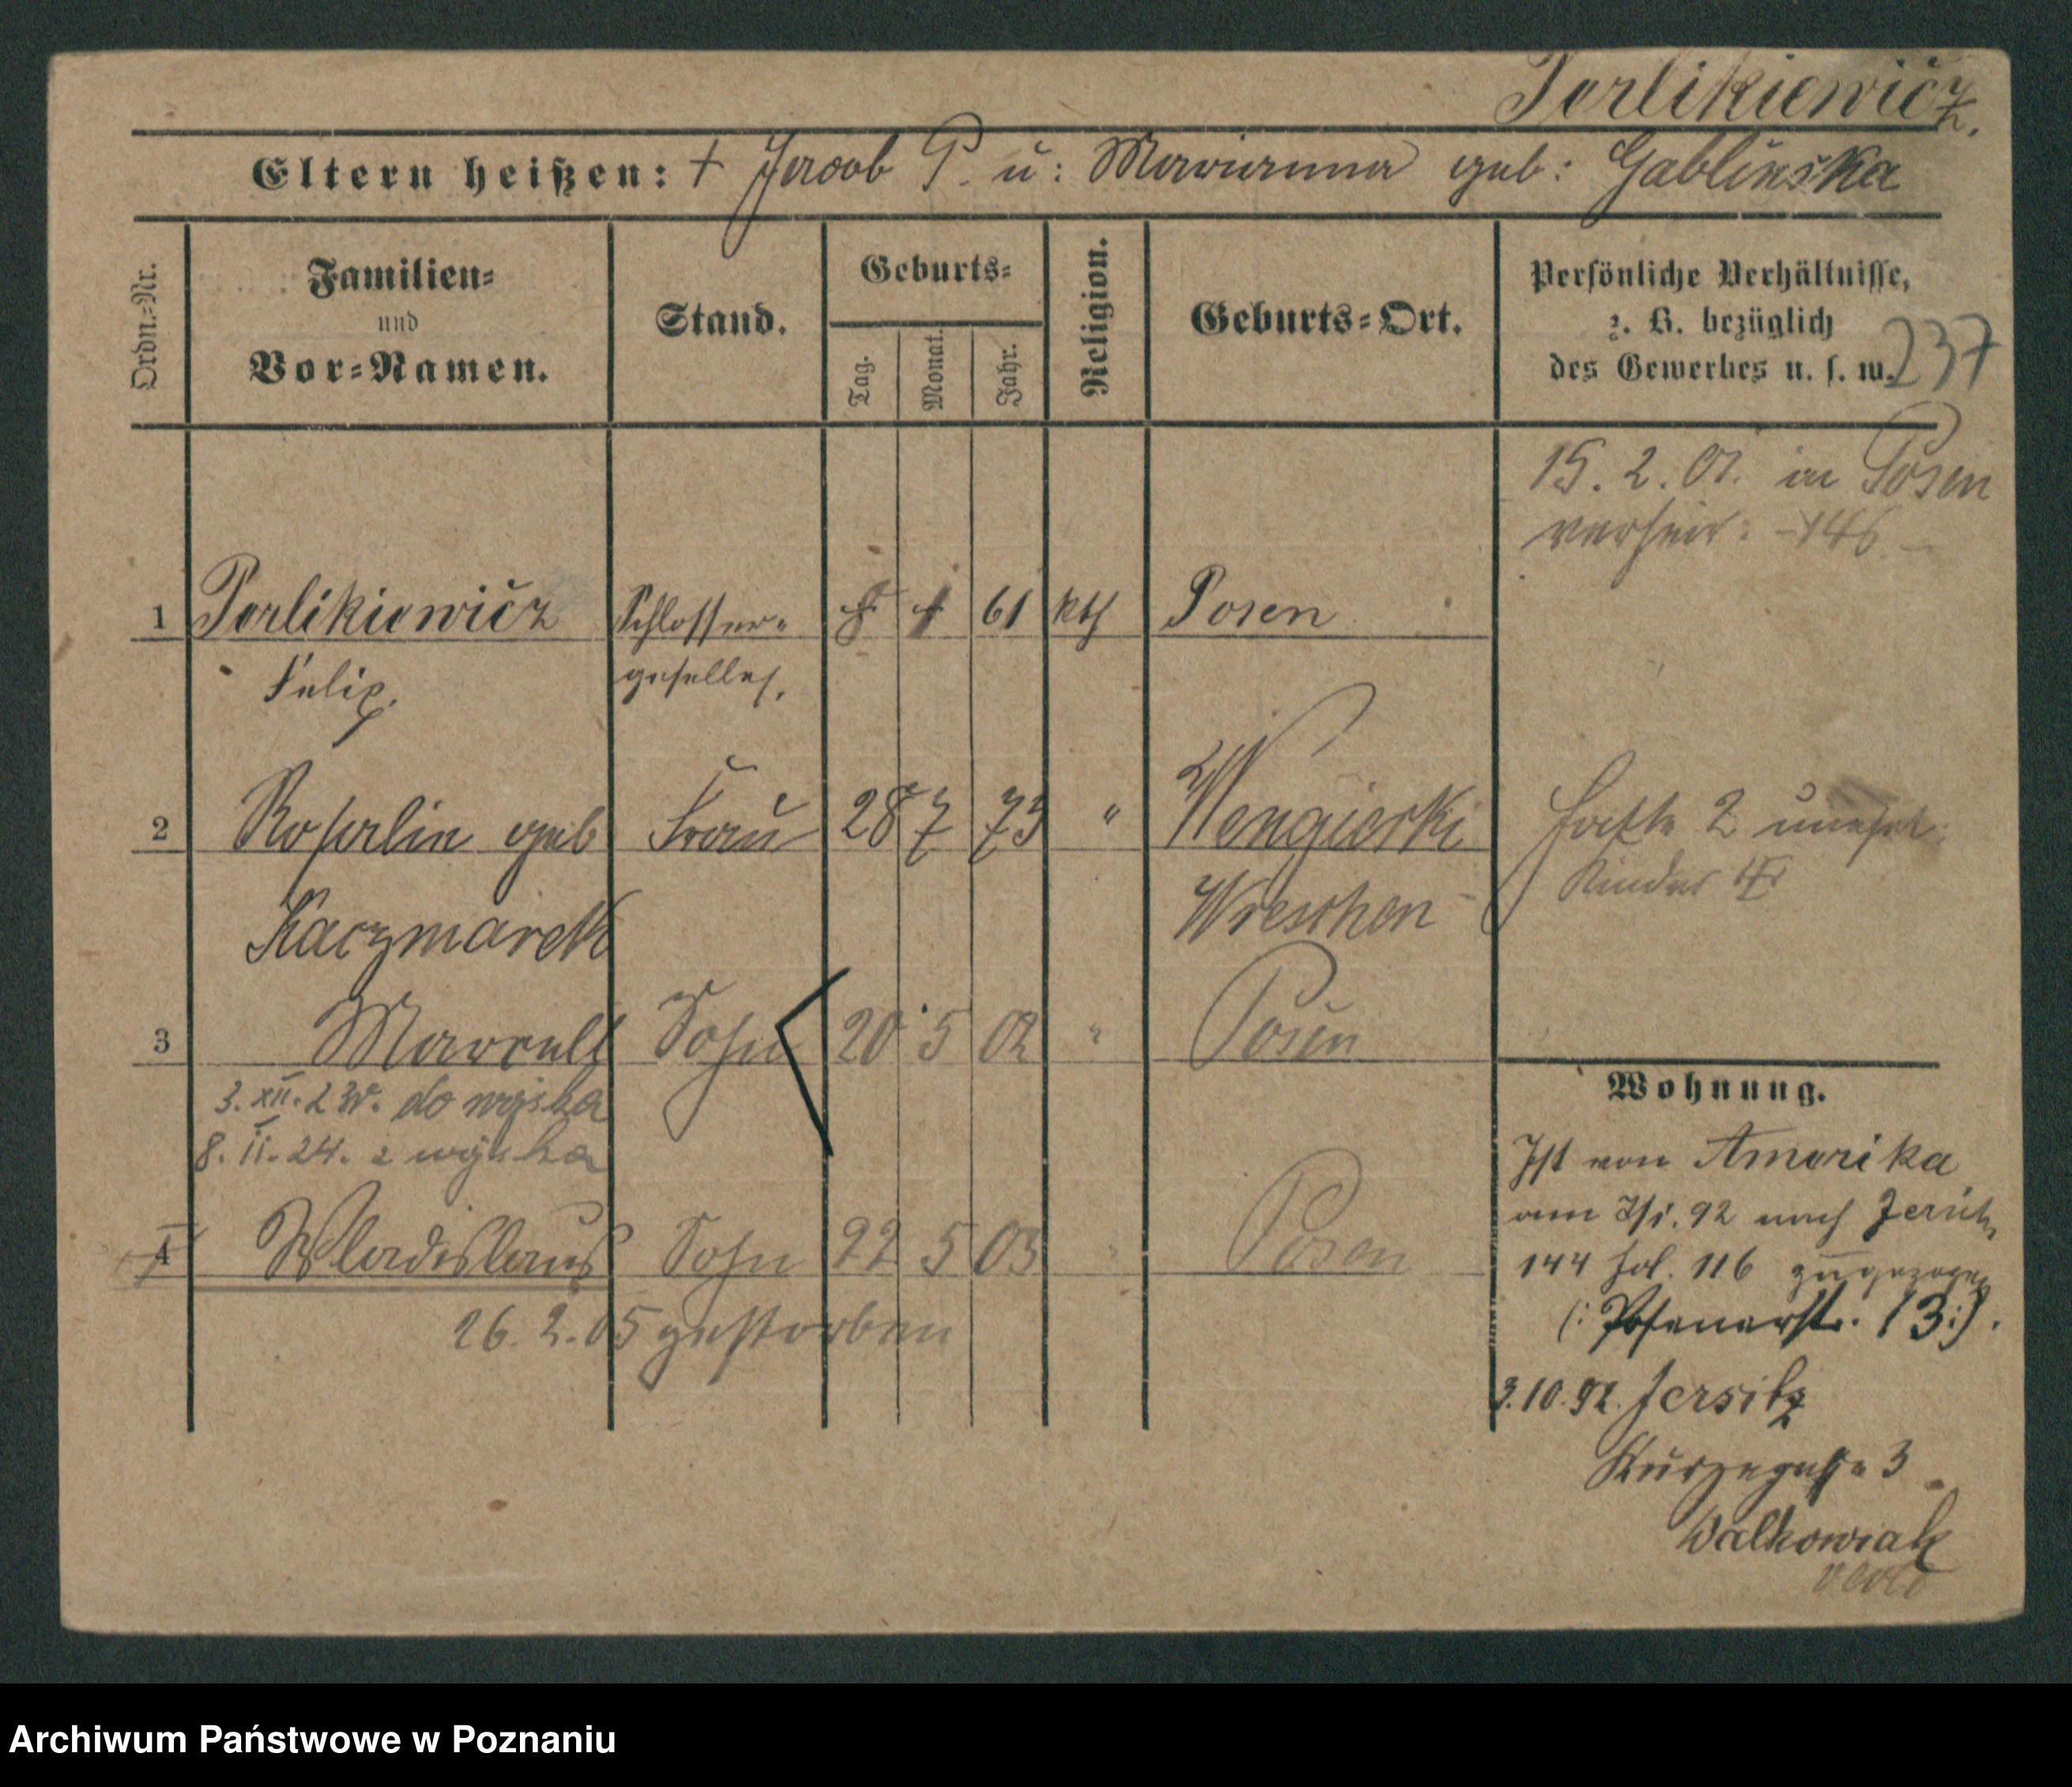 Perlikiewicz.
Eltern heißen: + Jacob P. u: Marianna geb: Gablinska
Ordn.-Nr.
Familien-
und
Vor-Namen.
Stand.
Geburts-
Tag.
Monat.
Jahr.
Religion.
Geburts-Ort.
Persönliche Verhältnisse,
z. B. bezüglich
des Gewerbes u. s. w.
237
15. 2. 01. in Posen
verheir: -146.-
1 Perlikiewicz Schlosser- 61 kth Posen
Felix. geselle.
2 Rosalie geb Frau 28 7 73 " Wengierki
Kaczmarek Wreschen
hatte 2 unehel:
Kinder
3 Marcell Sohn 20 5 02 " Posen
3. XII. 23r. do wojska
8. II. 24. z wojska
4 Wladislaus Sohn 22 5 03 " Posen
26. 2. 05 gestorben
Wohnung.
Ist von Amerika
am 92 nach
144 fol. 116 zugezogen
(: Posenerstr. 13:).
3.10.92. Jersitz
Kurzegasse 3
Walkowiak